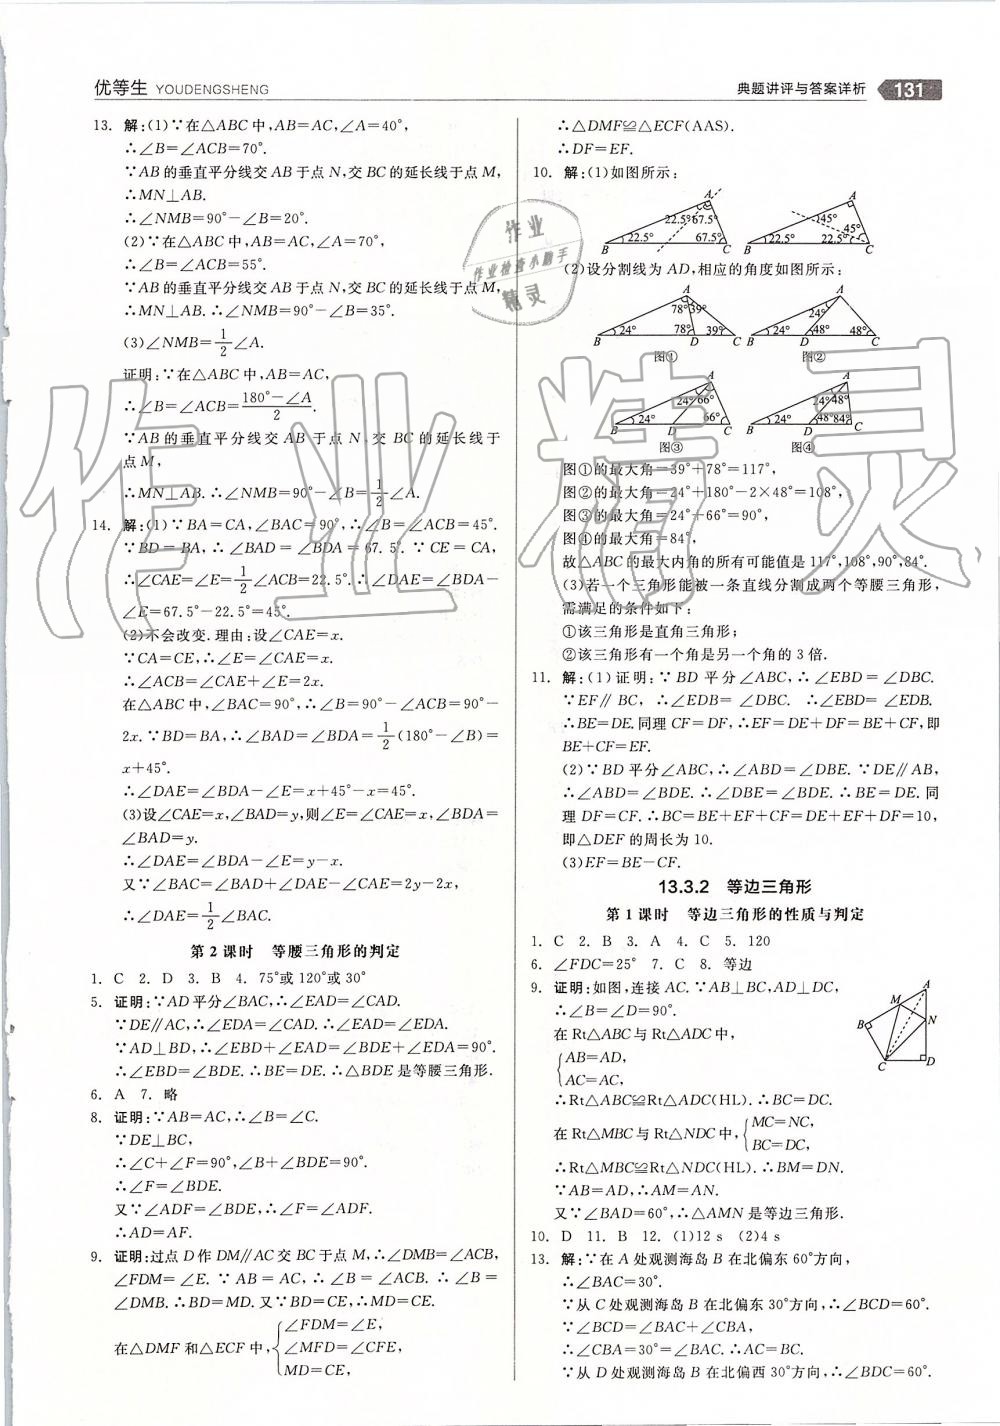 优等生 YOUDENGSHENG
典题讲评与答案详析 131
13. 解:(1)∵在△ABC中,AB=AC,∠A=40°,
∴∠B=∠ACB=70°.
∵AB的垂直平分线交AB于点N,交BC的延长线于点M,
∴MN⊥AB.
∴∠NMB=90°-∠B=20°.
(2)∵在△ABC中,AB=AC,∠A=70°,
∴∠B=∠ACB=55°.
∵AB的垂直平分线交AB于点N,交BC的延长线于点M,
∴MN⊥AB.∴∠NMB=90°-∠B=35°.
(3)∠NMB=1/2∠A.
证明:∵在△ABC中,AB=AC,
∴∠B=∠ACB=(180°-∠A)/2.
∵AB的垂直平分线交AB于点N,交BC的延长线于
点M,
∴MN⊥AB.∴∠NMB=90°-∠B=1/2∠A.
14. 解:(1)∵BA=CA,∠BAC=90°,∴∠B=∠ACB=45°.
∵BD=BA,∴∠BAD=∠BDA=67.5°.∵CE=CA,
∴∠CAE=∠E=1/2∠ACB=22.5°.∴∠DAE=∠BDA-
∠E=67.5°-22.5°=45°.
(2)不会改变.理由:设∠CAE=x.
∵CA=CE,∴∠E=∠CAE=x.
∴∠ACB=∠CAE+∠E=2x.
在△ABC中,∠BAC=90°,∴∠B=90°-∠ACB=90°-
2x.∵BD=BA,∴∠BAD=∠BDA=1/2(180°-∠B)=
x+45°.
∴∠DAE=∠BDA-∠E=x+45°-x=45°.
(3)设∠CAE=x,∠BAD=y,则∠E=∠CAE=x,∠BDA=
∠BAD=y.
∴∠DAE=∠BDA-∠E=y-x.
又∵∠BAC=∠BAD+∠DAC=2y-2x,
∴∠DAE=1/2∠BAC.
第2课时 等腰三角形的判定
1. C 2. D 3. B 4. 75°或120°或30°
5. 证明:∵AD平分∠BAC,∴∠EAD=∠CAD.
∵DE∥AC,∴∠EDA=∠CAD.∴∠EAD=∠EDA.
∵AD⊥BD,∴∠EBD+∠EAD=∠BDE+∠EDA=90°.
∴∠EBD=∠BDE.∴BE=DE.∴△BDE是等腰三角形.
6. A 7. 略
8. 证明:∵AB=AC,∴∠B=∠C.
∵DE⊥BC,
∴∠C+∠F=90°,∠B+∠BDE=90°.
∴∠F=∠BDE.
又∵∠ADF=∠BDE,∴∠F=∠ADF.
∴AD=AF.
9. 证明:过点D作DM∥AC交BC于点M,∴∠DMB=∠ACB,
∠FDM=∠E.∵AB=AC,∴∠B=∠ACB.∴∠B=
∠DMB.∴BD=MD.又∵BD=CE,∴MD=CE.
在△DMF和△ECF中,{∠FDM=∠E,
∠MFD=∠CFE,
MD=CE,
∴△DMF≌△ECF(AAS).
∴DF=EF.
10. 解:(1)如图所示:
A 22.5° 67.5° 22.5° 67.5° B C
A 45° 45° 22.5° 22.5° B C
(2)设分割线为AD,相应的角度如图所示:
A 78° 39° 24° 78° 39° B D C
A 24° 24° 48° 48° B D C
图① 图②
A 24° 66° 24° 66° B D C
A 24° 48° 24° 48° 84° B D C
图③ 图④
图①的最大角=39°+78°=117°,
图②的最大角=24°+180°-2×48°=108°,
图③的最大角=24°+66°=90°,
图④的最大角=84°,
故△ABC的最大内角的所有可能值是117°,108°,90°,84°.
(3)若一个三角形能被一条直线分割成两个等腰三角形,
需满足的条件如下:
①该三角形是直角三角形;
②该三角形有一个角是另一个角的3倍.
11. 解:(1)证明:∵BD平分∠ABC,∴∠EBD=∠DBC.
∵EF∥BC,∴∠EDB=∠DBC.∴∠EBD=∠EDB.
∴BE=DE.同理CF=DF,∴EF=DE+DF=BE+CF,即
BE+CF=EF.
(2)∵BD平分∠ABC,∴∠ABD=∠DBE.∵DE∥AB,
∴∠ABD=∠BDE.∴∠DBE=∠BDE.∴BE=DE.同
理DF=CF.∴BC=BE+EF+CF=DE+EF+DF=10,
即△DEF的周长为10.
(3)EF=BE-CF.
13.3.2 等边三角形
第1课时 等边三角形的性质与判定
1. C 2. B 3. A 4. C 5. 120
6. ∠FDC=25° 7. C 8. 等边
9. 证明:如图,连接AC.∵AB⊥BC,AD⊥DC,
∴∠B=∠D=90°.
在Rt△ABC与Rt△ADC中,
{AB=AD,
AC=AC,
A M B N C D
∴Rt△ABC≌Rt△ADC(HL).∴BC=DC.
在Rt△MBC与Rt△NDC中,{MC=NC,
BC=DC,
∴Rt△MBC≌Rt△NDC(HL).∴BM=DN.
∵AB=AD,∴AM=AN.
又∵∠BAD=60°,∴△AMN是等边三角形.
10. D 11. B 12. (1)12 s (2)4 s
13. 解:∵在A处观测海岛B在北偏东60°方向,
∴∠BAC=30°.
∵从C处观测海岛B在北偏东30°方向,∴∠BCD=60°.
∵∠BCD=∠BAC+∠CBA,
∴∠CBA=30°=∠BAC.∴BC=AC.
∵从D处观测海岛B在北偏西30°方向,∴∠BDC=60°.
作业
作业检查小助手
精灵
作业精灵